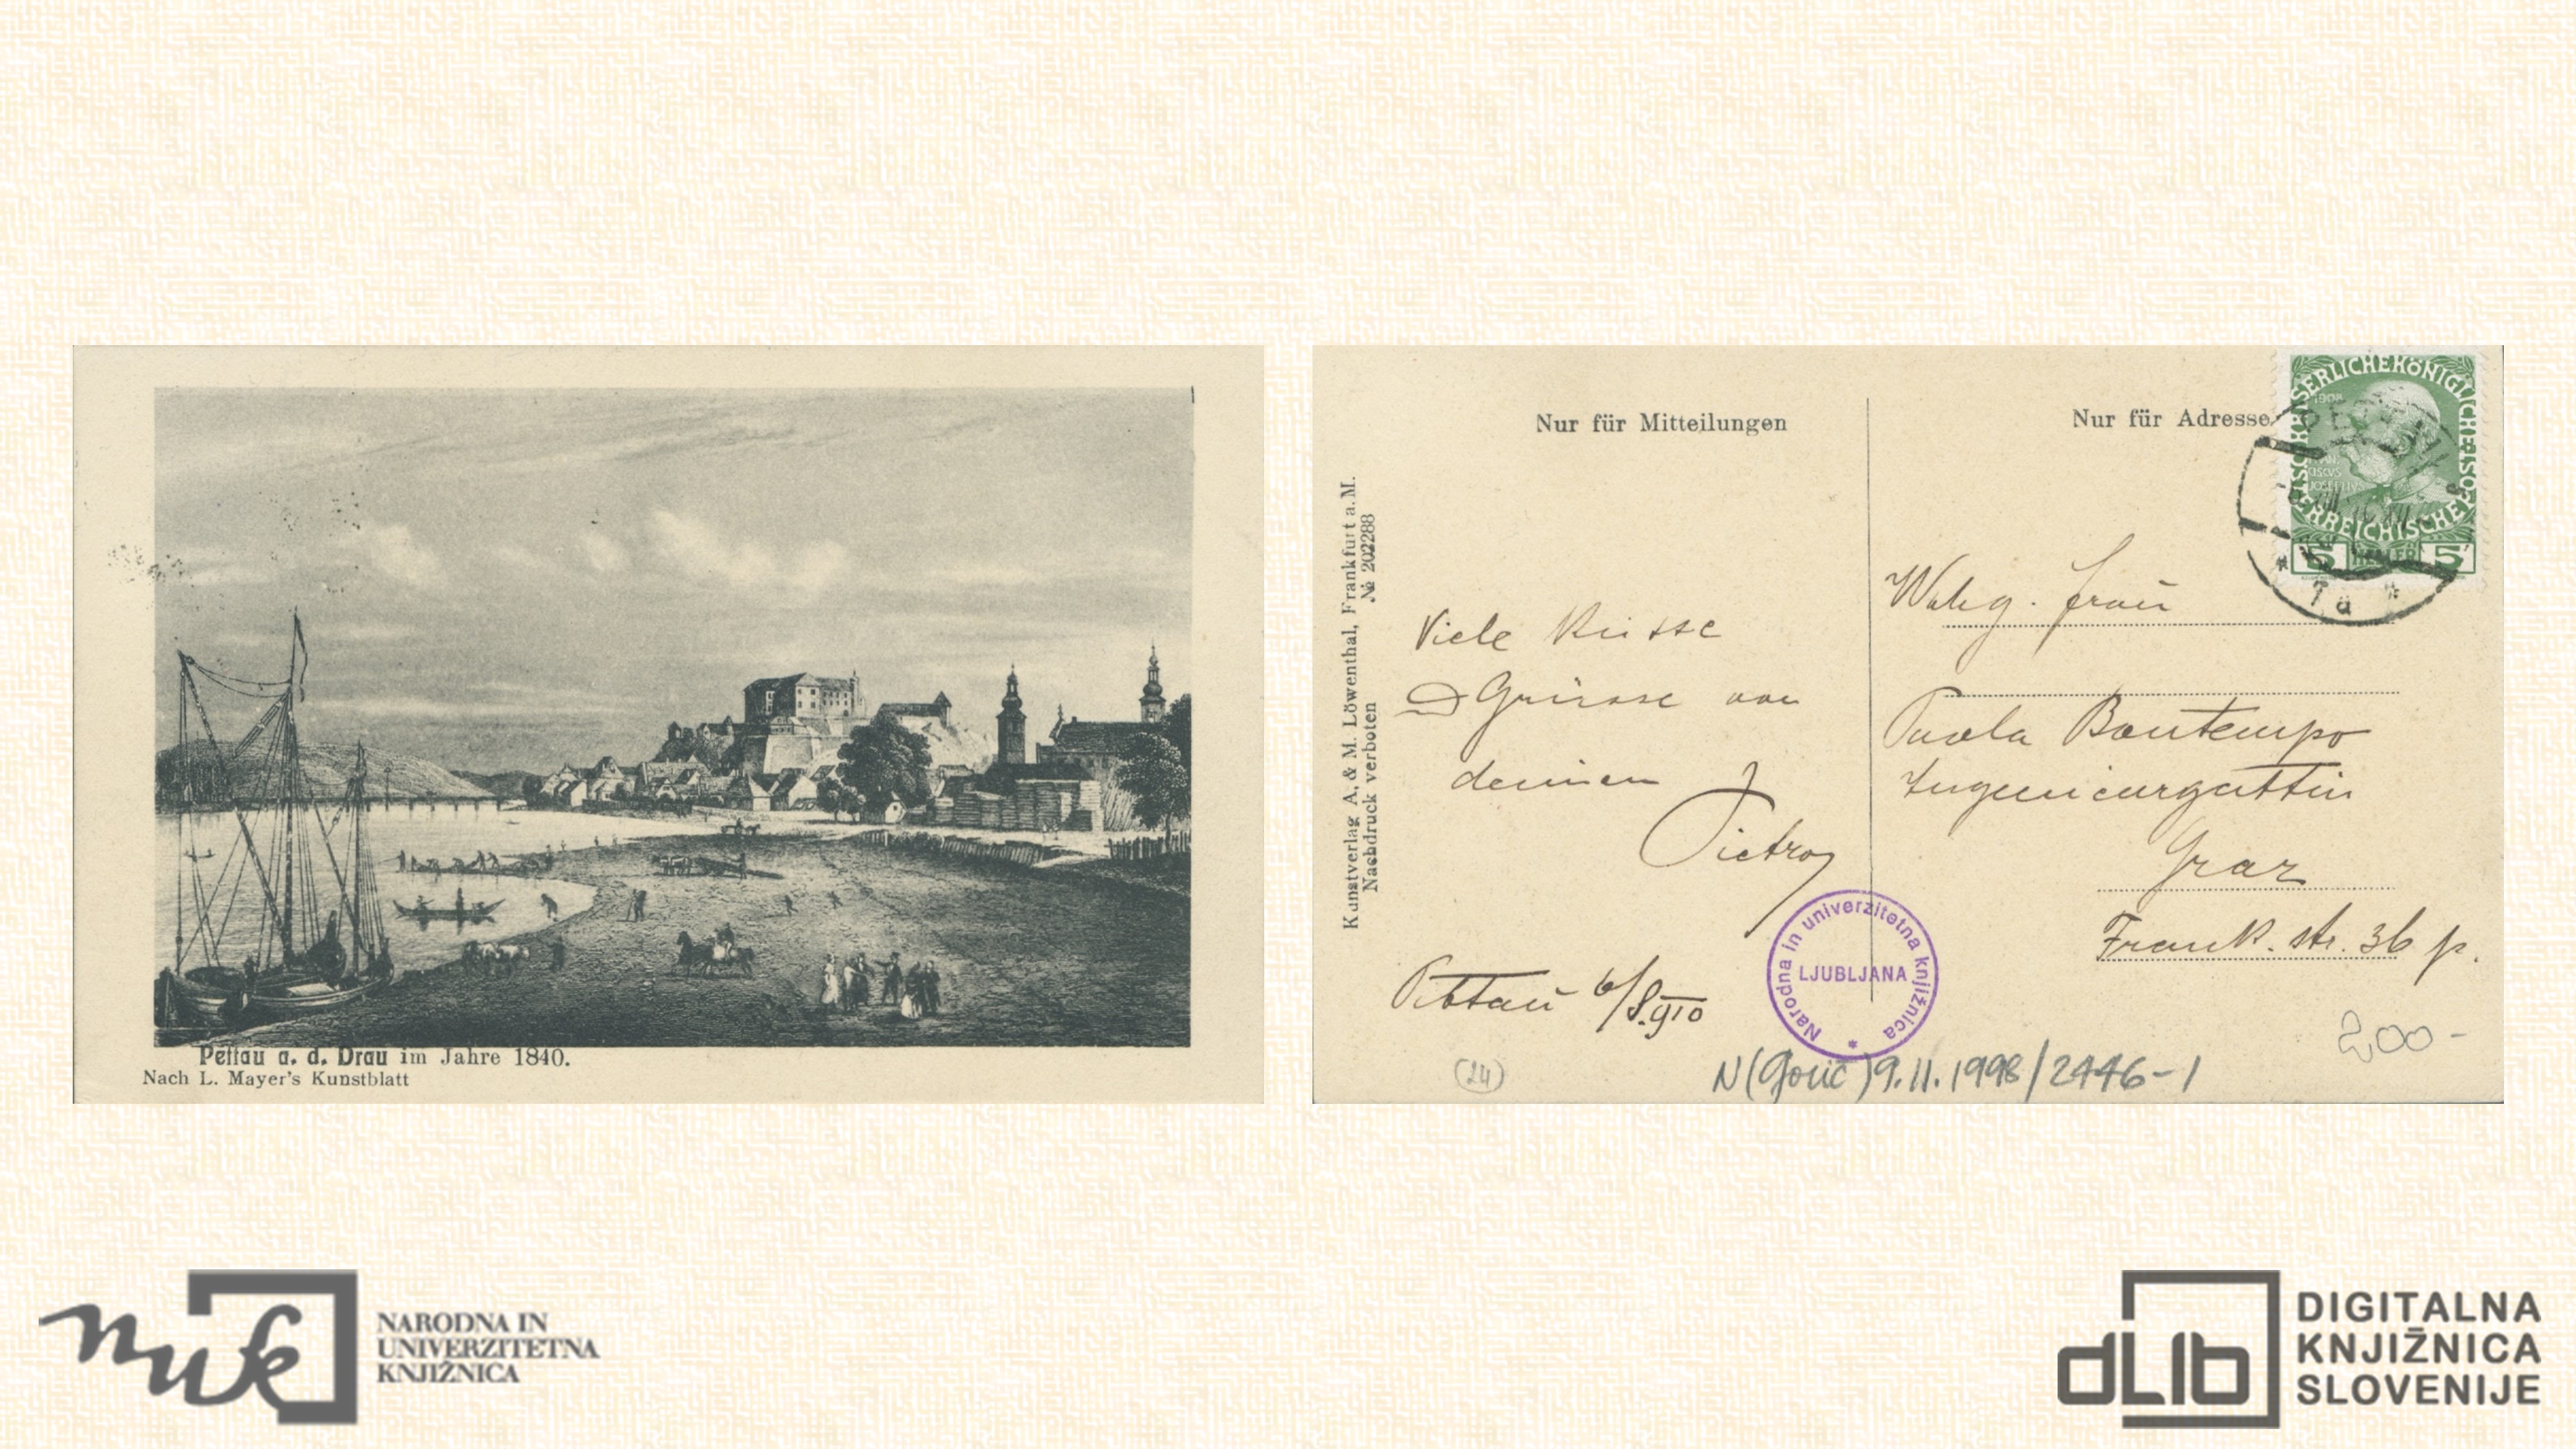 Pettau a. d. Drau im Jahre 1840.
Nach L. Mayer's Kunstblatt
Kunstverlag A. & M. Löwenthal, Frankfurt a. M.
Nachdruck verboten № 202288
Nur für Mitteilungen
Viele Küsse
Grüsse von
deinen
Pietro
Pettau 6/8.910
(24)
Nur für Adresse
KAISERLICHE KÖNIGLICHE ÖSTERREICHISCHE POST
1908
FRANCISCUS JOSEPHUS I
5 HELLER 5
PETTAU
7a
Frau
Paola Bontempo
Ingenieurgattin
Graz
Frank. str. 36 p.
Narodna in univerzitetna knjižnica
LJUBLJANA
200-
N (Gorič) 9.11.1998/2446-1
nuk
NARODNA IN
UNIVERZITETNA
KNJIŽNICA
dLib
DIGITALNA
KNJIŽNICA
SLOVENIJE